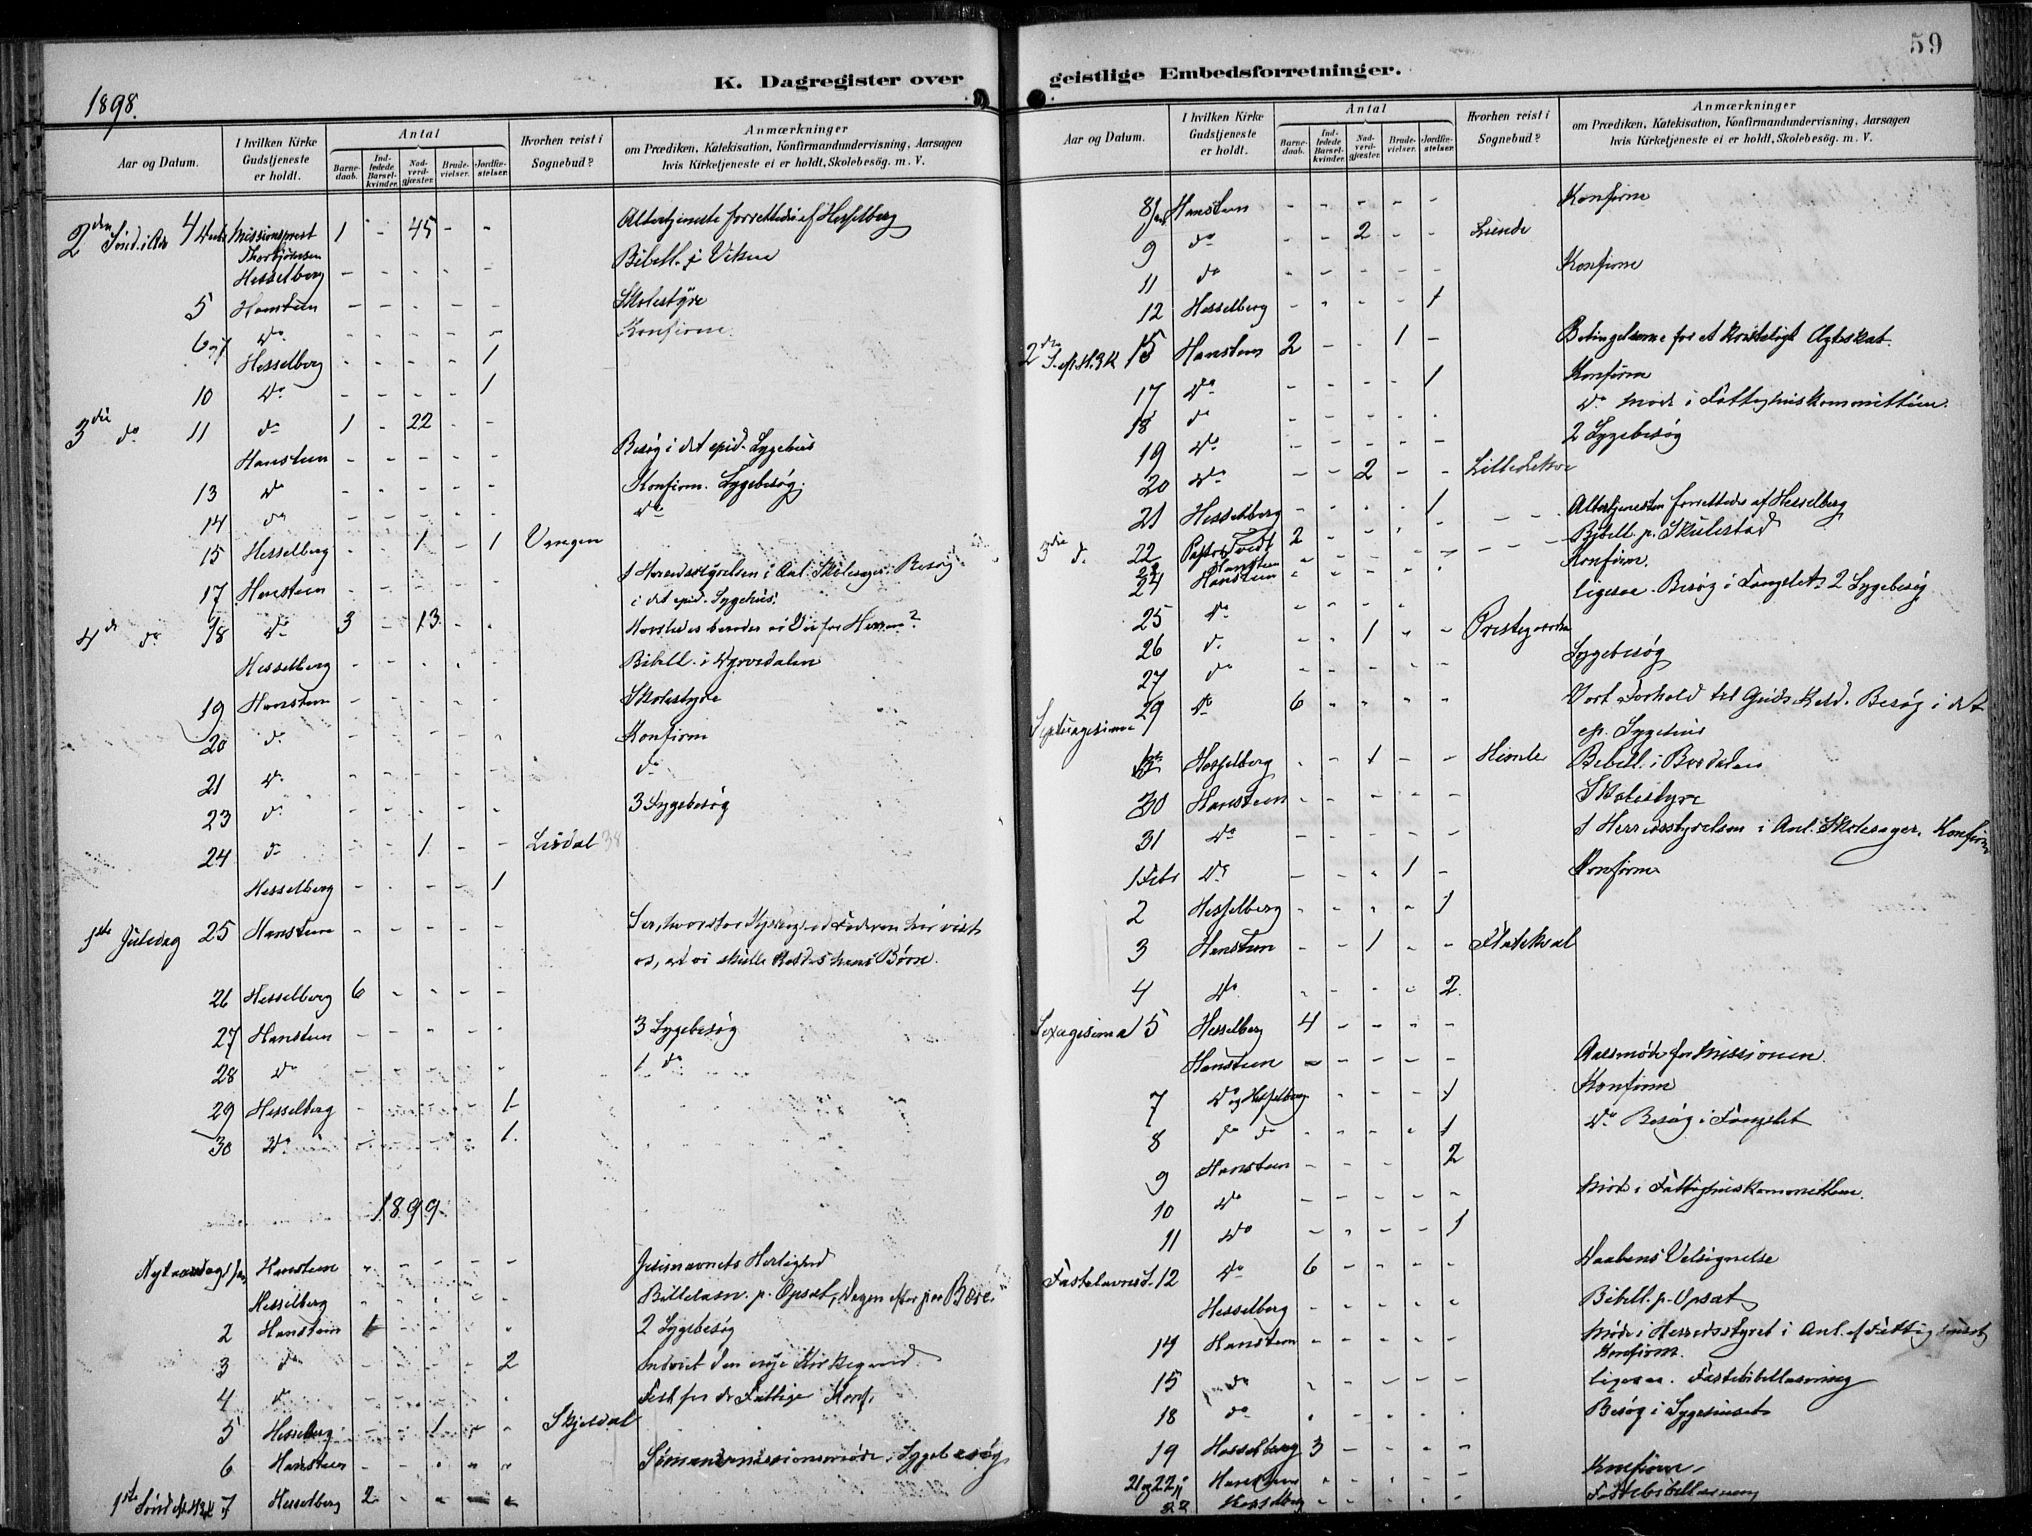 59
K. Dagregister over
geistlige Embedsforretninger.
1898.
Aar og Datum.
I hvilken Kirke Gudstjeneste er holdt.
Antal
Barne-daab.
Ind-ledede Barsel-kvinder.
Nad-verd-gjæster.
Brude-vielser.
Jordfæ-stelser.
Hvorhen reist i Sognebud?
Anmærkninger
om Prædiken, Katekisation, Konfirmandundervisning, Aarsagen
hvis Kirketjeneste ei er holdt, Skolebesög. m. V.
2den Sönd. i Adv 4 Decbr Missionsprest Thorbjörnsen 1 - 45 - - Altertjeneste forrettedes af Hesselberg
Hesselberg - - - - - Bibell. i Viken
5 Hansteen - - - - - Skolestyre
6 og 7 do - - - - - Konfirm.
Hesselberg - - - - 1
10 do - - - - 1
3die do 11 do 1 - 22 - -
Hansteen - - - - - Besög i det epid. Sygehus
13 do - - - - - Konfirm. Sygebesög.
14 do - - - - - do
15 Hesselberg - - 1 - 1 Vangen
17 Hansteen - - - - - I Herredsstyrelsen i Anl. Skolesager. Besög
i det epid. Sygehus.
4de do 18 do 3 - 13 - - Hvorledes bereder vi Vei for Herren?
Hesselberg - - - - - Bibell. i Dyrvedalen
19 Hansteen - - - - - Skolestyre
20 do - - - - - Konfirm
21 do - - - - - do
23 do - - - - - 3 Sygebesög
24 do - - 1 - - 38
Hesselberg - - - - 1
1ste Juledag 25 Hansteen - - - - - Ser, hvor stor Kjærlighed Faderen har vist
os, at vi skulle kaldes hans Börn.
26 Hesselberg 6 - - - -
27 Hansteen - - - - - 3 Sygebesög
28 do - - - - - 1 do
29 Hesselberg - - - - 1
30 do - - - - 1.
1899.
Nytaarsdag 1 Jan Hansteen - - - - - Jesunavnets Herlighed
Hesselberg - - - - - Bibellæsn. p. Opsæt, Dagen efter paa
2 Hansteen 1 - - - - 2 Sygebesög
3 do - - - - 2 Indviet den nye Kirkegaard.
4 do - - - - - Fest for de Fattige. Konf.
5 Hesselberg - - 1 - - Skjeldal
6 Hansteen - - - - - Sömandsmissionsmöde. Sygebesög
1ste Sönd. ef. H3K 7 Hesselberg 2 - - - -
Aar og Datum.
I hvilken Kirke Gudstjeneste er holdt.
Antal
Barne-daab.
Ind-ledede Barsel-kvinder.
Nad-verd-gjæster.
Brude-vielser.
Jordfæ-stelser.
Hvorhen reist i Sognebud?
Anmærkninger
om Prædiken, Katekisation, Konfirmandundervisning, Aarsagen
hvis Kirketjeneste ei er holdt, Skolebesög. m. V.
8/1 Hansteen - - - - - Konfirm
9 do - - 2 - -
11 do - - - - - Konfirm
12 Hesselberg - - - - 1
2den S. ef. H.3K 15 Hansteen 2 - - 1 - Betingelserne for et kristeligt Ægteskab.
17 do - - - - 1 Konfirm
18 do - - - - - do Möde i Fattighuskommitteen.
19 do - - - - - 2 Sygebesög
20 do - - 2 - -
21 Hesselberg - - - - 1
3die d. 22 Pastor Tvedt 2 - - - - Altertjenesten forrettedes af Hesselberg
Hansteen - - - - - Bibell. p. Skulestad
24 Hansteen - - - - - Konfirm.
25 do - - - - ligesaa. Besög i Fængslet. 2 Sygebesög
26 d. - - 1 - - Prestegaarden
27 do - - - - - Sygebesög
Septuagesima 29 do 6 - - - - Vort Forhold til Guds Kald. Besög i det
ep. Sygehus
Hesselberg - - 1 - - Himle Bibell. i Bordalen
30 Hansteen - - - - - Skolestyre
31 do - - - - - I Herredsstyrelsen i Anl. Skolesager. Konfirm
1 Febr do - - - 1 - Konfirm
2 Hesselberg - - - - 1
3 Hansteen - - 1 - -
4 do - - - - 2.
Sexagesima 5 Hesselberg 4 - - - -
Hansteen - - - - - Aarsmöde for Missionen.
7 do og Hesselberg - - - - 1 Konfirm
8 do do - - - - 1 do Besög i Fængslet
9 Hansteen - - - - 2
10 do - - - - - Möde i Fattighuskommitteen.
11 do - - - - 1
Fastelavns S. 12 do 6 - - - - Daabens Velsignelse
Hesselberg - - - - - Bibell. p. Opsæt
14 Hansteen - - - - - Möde i Herredsstyret i Anl. af Fattighuset
Konfirm.
15 do - - - - - ligesaa. Fastebibellæsning
18 do - - - - - Besög i Sygehuset
19 Hesselberg 3 - - - -
21 og 22 Hansteen - - - - - Konfirm
22 Hesselberg - - - - - Fastebibellæsning